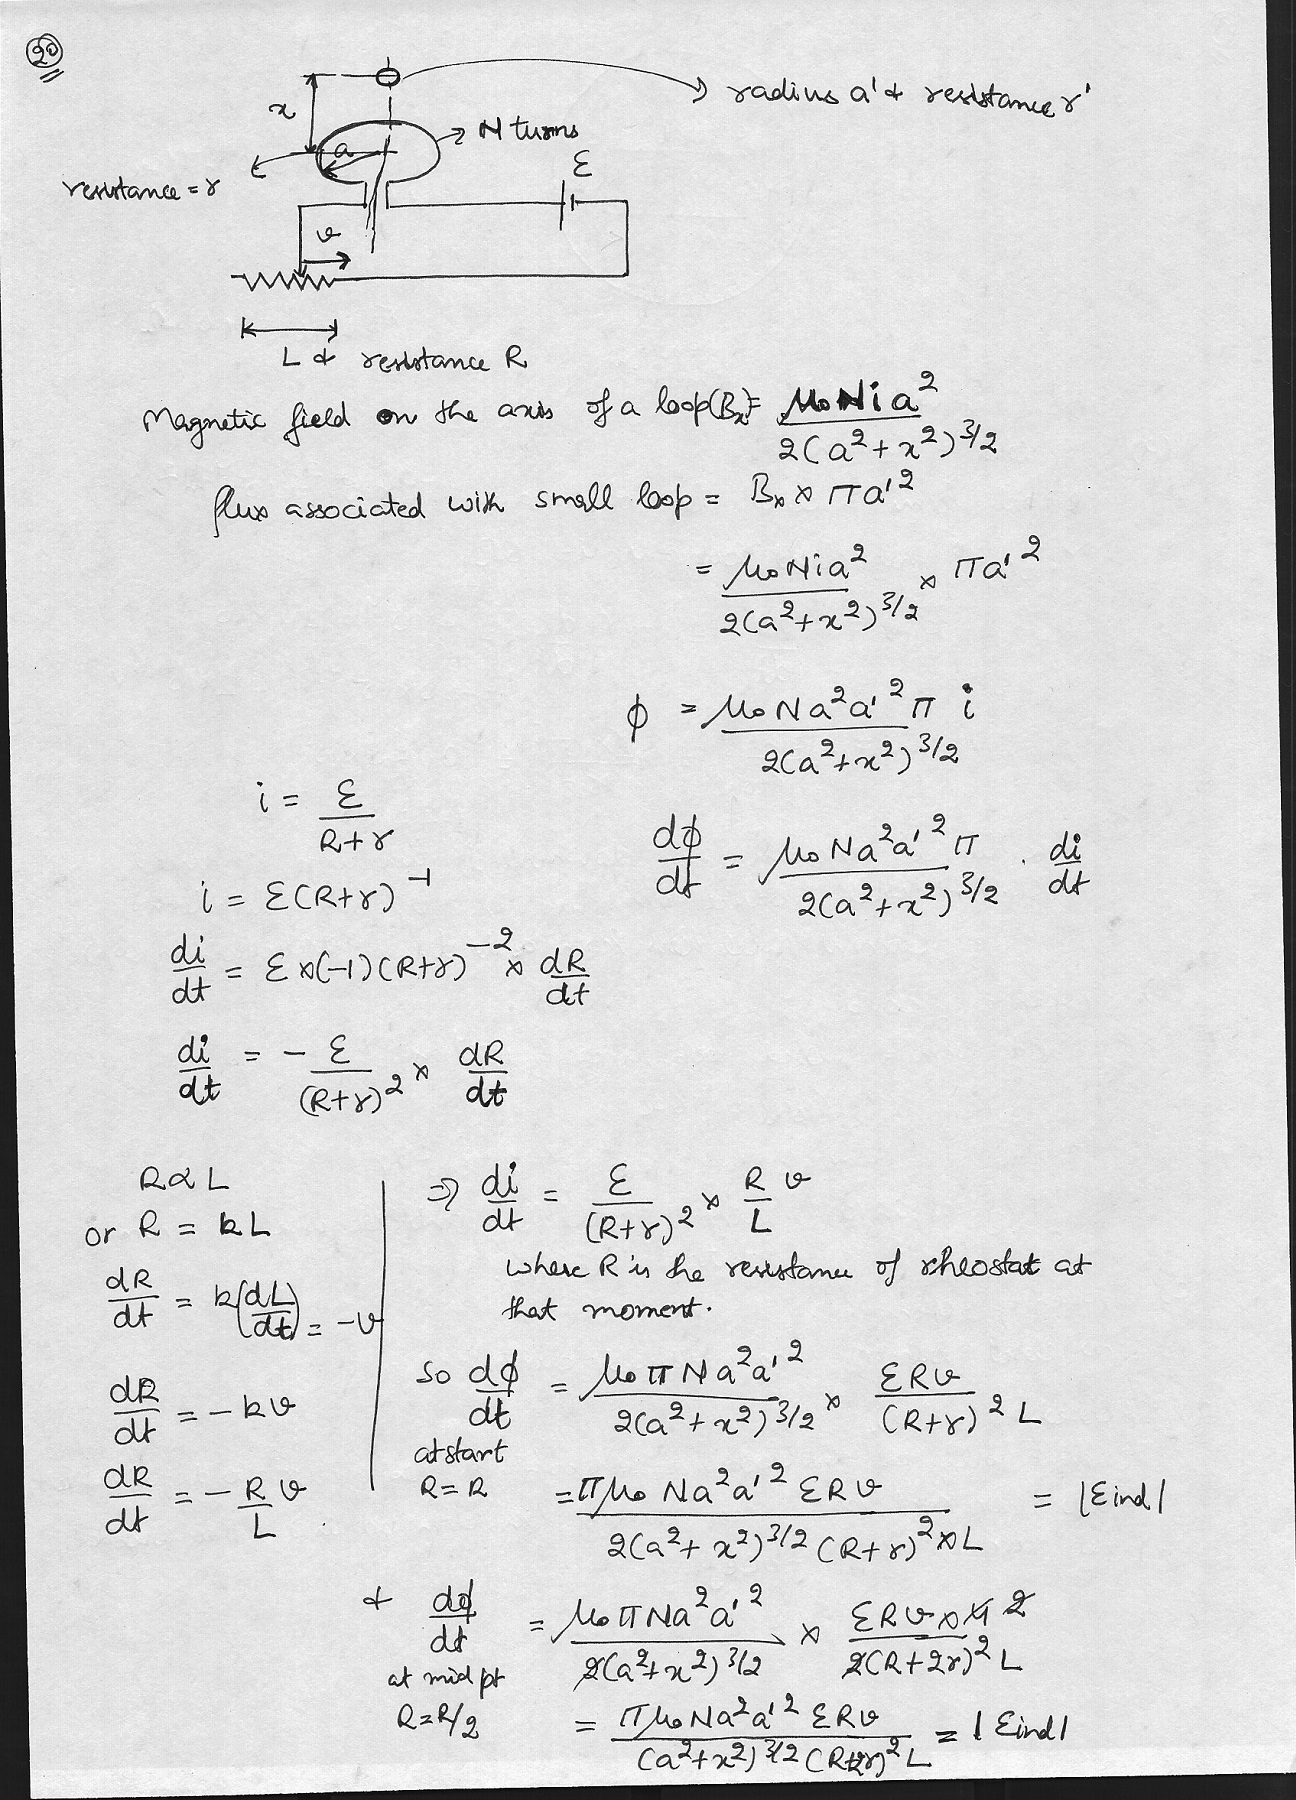 20
x
a
→ N turns
→ radius a' & resistance r'
resistance = r
ε
v
L & resistance R
Magnetic field on the axis of a loop(Bx) = μ₀Nia² / 2(a²+x²)^3/2
flux associated with small loop = Bx × πa'²
= μ₀Nia² / 2(a²+x²)^3/2 × πa'²
φ = μ₀Na²a'²π i / 2(a²+x²)^3/2
i = ε / R+r
dφ/dt = μ₀Na²a'²π / 2(a²+x²)^3/2 . di/dt
i = ε(R+r)^-1
di/dt = ε×(-1)(R+r)^-2 × dR/dt
di/dt = - ε/(R+r)² × dR/dt
R∝L
or R = kL
dR/dt = k(dL/dt) = -v
dR/dt = -kv
dR/dt = - R/L v
⇒ di/dt = ε/(R+r)² × R/L v
where R is the resistance of rheostat at
that moment.
so dφ/dt = μ₀πNa²a'² / 2(a²+x²)^3/2 × εRv / (R+r)² L
at start
R=R
= πμ₀Na²a'²εRv / 2(a²+x²)^3/2 (R+r)²×L = |εind|
& dφ/dt = μ₀πNa²a'² / 2(a²+x²)^3/2 × εRv×4 2 / 2(R+2r)² L
at mid pt
R=R/2
= πμ₀Na²a'²εRv / (a²+x²)^3/2 (R+2r)² L = |εind|